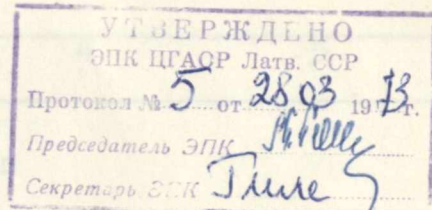 УТВЕРЖДЕНО
ЭПК ЦГАОР Латв. ССР
Протокол № 5 от 28.03 1973г.
Председатель ЭПК
Секретарь ЭПК